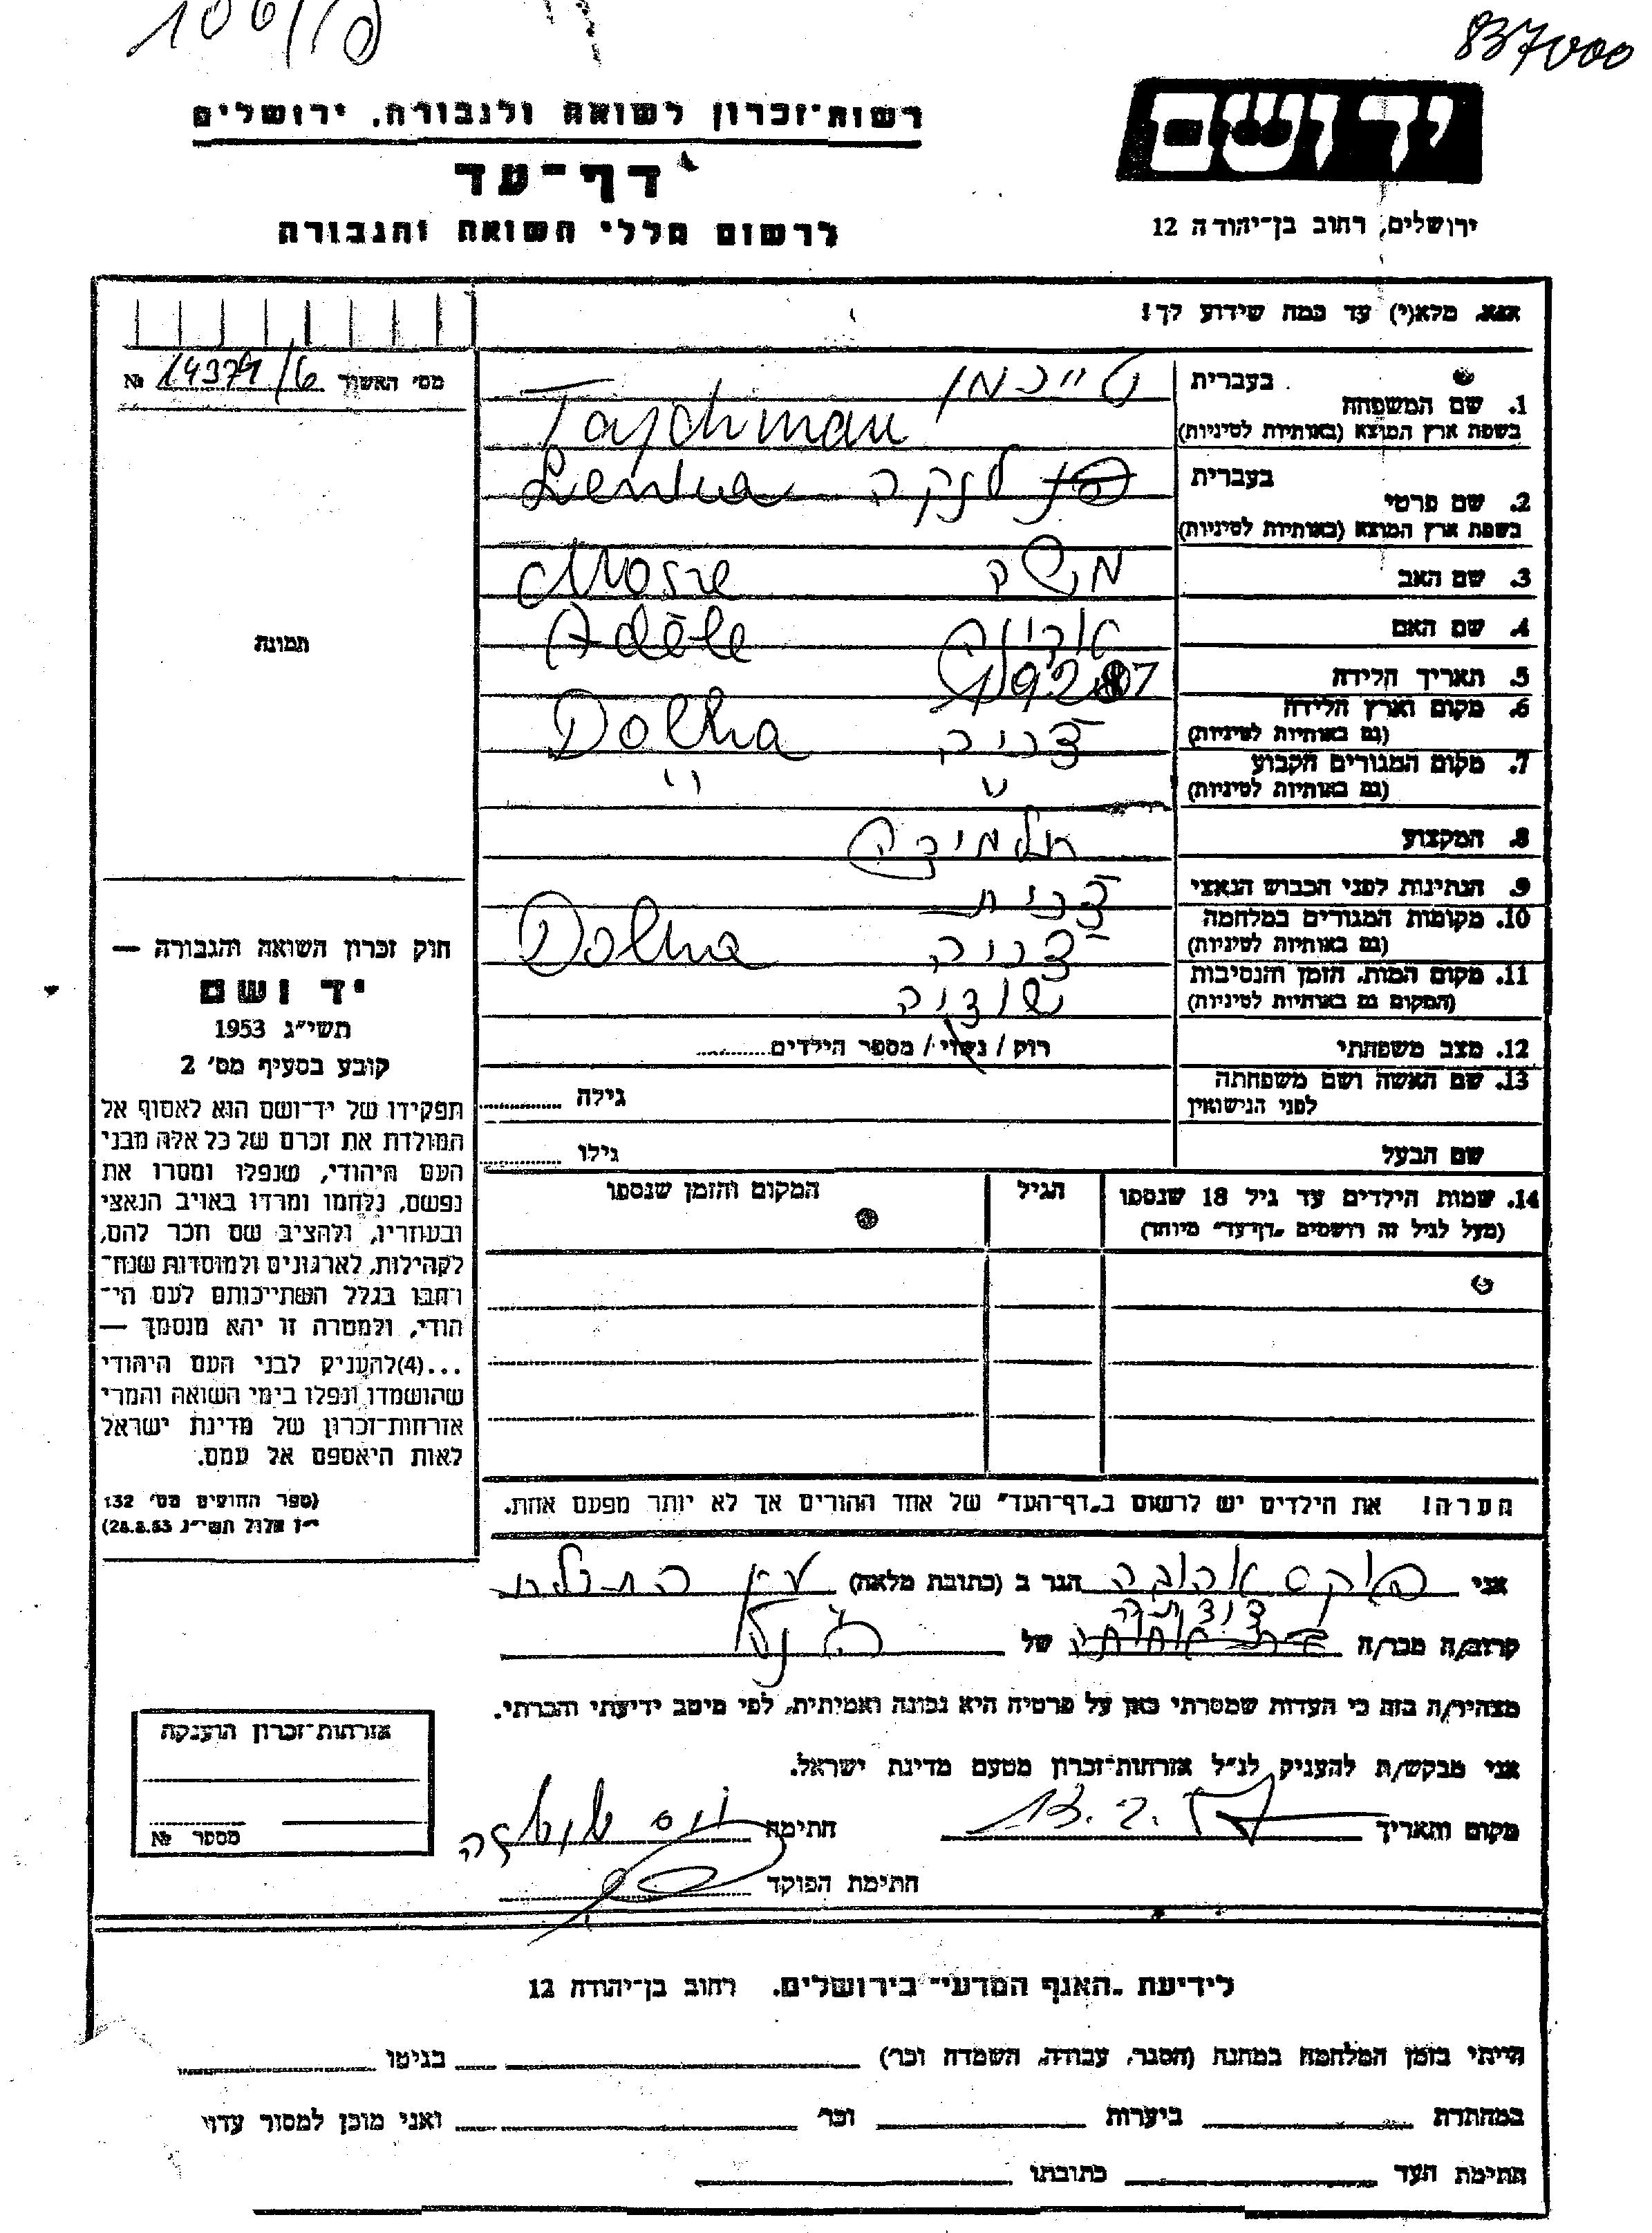 837000
רשות־זכרון לשואה ולגבורה, ירושלים
יד ושם
דף־עד
ירושלים, רחוב בן־יהודה 12
לרשום חללי השואה והגבורה
אנא, מלא(י) עד כמה שידוע לך!
מס׳ האשור № 14379/6
בעברית טייכמן
1. שם המשפחה
בשפת ארץ המוצא (באותיות לטיניות) Tajchman
בעברית לנקה Lenka
2. שם פרטי
בשפת ארץ המוצא (באותיות לטיניות)
3. שם האב משה Mosze
4. שם האם Adèle
תמונה
5. תאריך הלידה
6. מקום וארץ הלידה
(גם באותיות לטיניות) Dolha
7. מקום המגורים הקבוע
(גם באותיות לטיניות) " "
8. המקצוע תלמידה
9. הנתינות לפני הכבוש הנאצי
10. מקומות המגורים במלחמה
(גם באותיות לטיניות) Dolha
11. מקום המות, הזמן והנסיבות
(המקום גם באותיות לטיניות)
12. מצב משפחתי רוק / נשוי / מספר הילדים
13. שם האשה ושם משפחתה
לפני הנישואין גילה
שם הבעל גילו
14. שמות הילדים עד גיל 18 שנספו
(מעל לגיל זה רושמים "דף־עד" מיוחד)
הגיל
המקום והזמן שנספו
חוק זכרון השואה והגבורה —
יד ושם
תשי״ג 1953
קובע בסעיף מס׳ 2
תפקידו של יד־ושם הוא לאסוף אל
המולדת את זכרם של כל אלה מבני
העם היהודי, שנפלו ומסרו את
נפשם, נלחמו ומרדו באויב הנאצי
ובעוזריו, ולהציב שם וזכר להם,
לקהילות, לארגונים ולמוסדות שנח־
רבו בגלל השתייכותם לעם הי־
הודי, ולמטרה זו יהא מוסמך —
...(4) להעניק לבני העם היהודי
שהושמדו ונפלו בימי השואה והמרי
אזרחות־זכרון של מדינת ישראל
לאות היאספם אל עמם.
(ספר החוקים מס׳ 132
י״ז אלול תשי״ג 28.8.53)
הערה! את הילדים יש לרשום ב"דף־העד" של אחד ההורים אך לא יותר מפעם אחת.
אני פוקס אהובה הגר ב (כתובת מלאה)
קרוב/ה מכר/ה דודתה של הנ״ל
מצהיר/ה בזה כי העדות שמסרתי כאן על פרטיה היא נכונה ואמיתית, לפי מיטב ידיעתי והכרתי.
אני מבקש/ת להעניק לנ״ל אזרחות־זכרון מטעם מדינת ישראל.
מקום ותאריך 13.2.57 חתימה
חתימת הפוקד
אזרחות־זכרון הוענקה
מספר №
לידיעת "האגף המדעי" בירושלים, רחוב בן־יהודה 12
הייתי בזמן המלחמה במחנה (הסגר, עבודה, השמדה וכו׳) בגיטו
במחתרת ביערות וכו׳ ואני מוכן למסור עדו׳
חתימת העד כתובתו